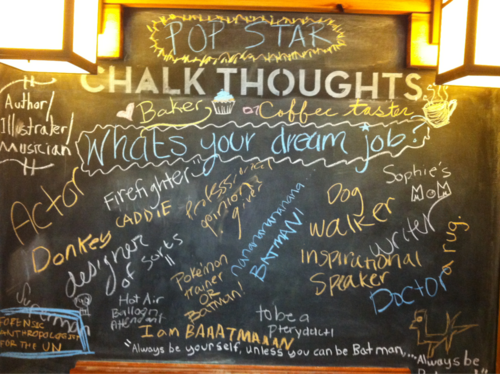 POP STAR
CHALK THOUGHTS
Baker
or Coffee taster
Author/
Illustrator/
Musician
What's your dream job?
Actor
Firefighter
CADDIE
Professional
opinion
giver
nanananananana...
BATMAN!
Dog
walker
Sophie's
MOM
writer
Donkey
designer
of sorts
Inspirational
Speaker
Doctor
a rug.
Pokemon
trainer
OR
Batman!
Superman
Hot Air
Balloon
Attendant
FORENSIC
ANTHROPOLOGIST
FOR THE UN
I am BAAATMANN
to be a
pterydactl
"Always be yourself, unless you can be Batman,...
Always be